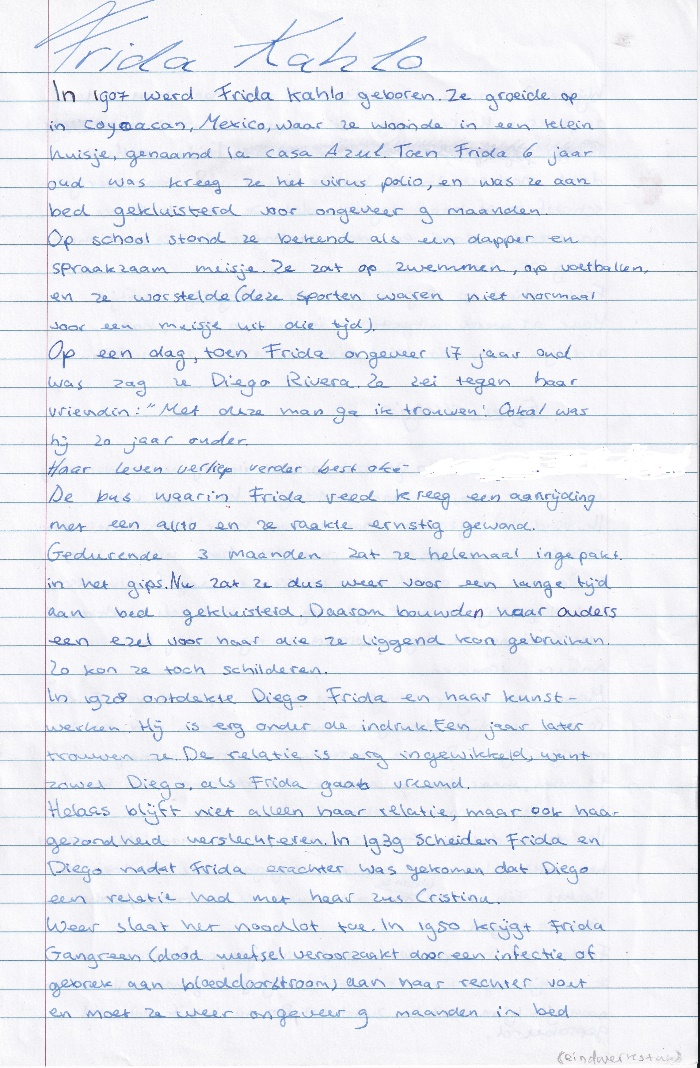 Frida Kahlo
In 1907 werd Frida Kahlo geboren. Ze groeide op
in Coyoacan, Mexico, waar ze woonde in een klein
huisje, genaamd la casa Azul. Toen Frida 6 jaar
oud was kreeg ze het virus polio, en was ze aan
bed gekluisterd voor ongeveer 9 maanden.
Op school stond ze bekend als een dapper en
spraakzaam meisje. Ze zat op zwemmen, op voetballen,
en ze worstelde (deze sporten waren niet normaal
voor een meisje uit die tijd).
Op een dag, toen Frida ongeveer 17 jaar oud
was zag ze Diego Rivera. Ze zei tegen haar
vriendin: "Met deze man ga ik trouwen! Ookal was
hij 20 jaar ouder.
Haar leven verliep verder best oké
De bus waarin Frida reed kreeg een aanrijding
met een auto en ze raakte ernstig gewond.
Gedurende 3 maanden zat ze helemaal ingepakt
in het gips. Nu zat ze dus weer voor een lange tijd
aan bed gekluisterd. Daarom bouwden haar ouders
een ezel voor haar die ze liggend kon gebruiken.
Zo kon ze toch schilderen.
In 1928 ontdekte Diego Frida en haar kunst-
werken. Hij is erg onder de indruk. Een jaar later
trouwen ze. De relatie is erg ingewikkeld, want
zowel Diego, als Frida gaat vreemd.
Helaas blijft niet alleen haar relatie, maar ook haar
gezondheid verslechteren. In 1939 scheiden Frida en
Diego nadat Frida erachter was gekomen dat Diego
een relatie had met haar zus Cristina.
Weer slaat het noodlot toe. In 1950 krijgt Frida
Gangreen (dood weefsel veroorzaakt door een infectie of
gebrek aan bloeddoorstroom) aan haar rechter voet
en moet ze weer ongeveer 9 maanden in bed